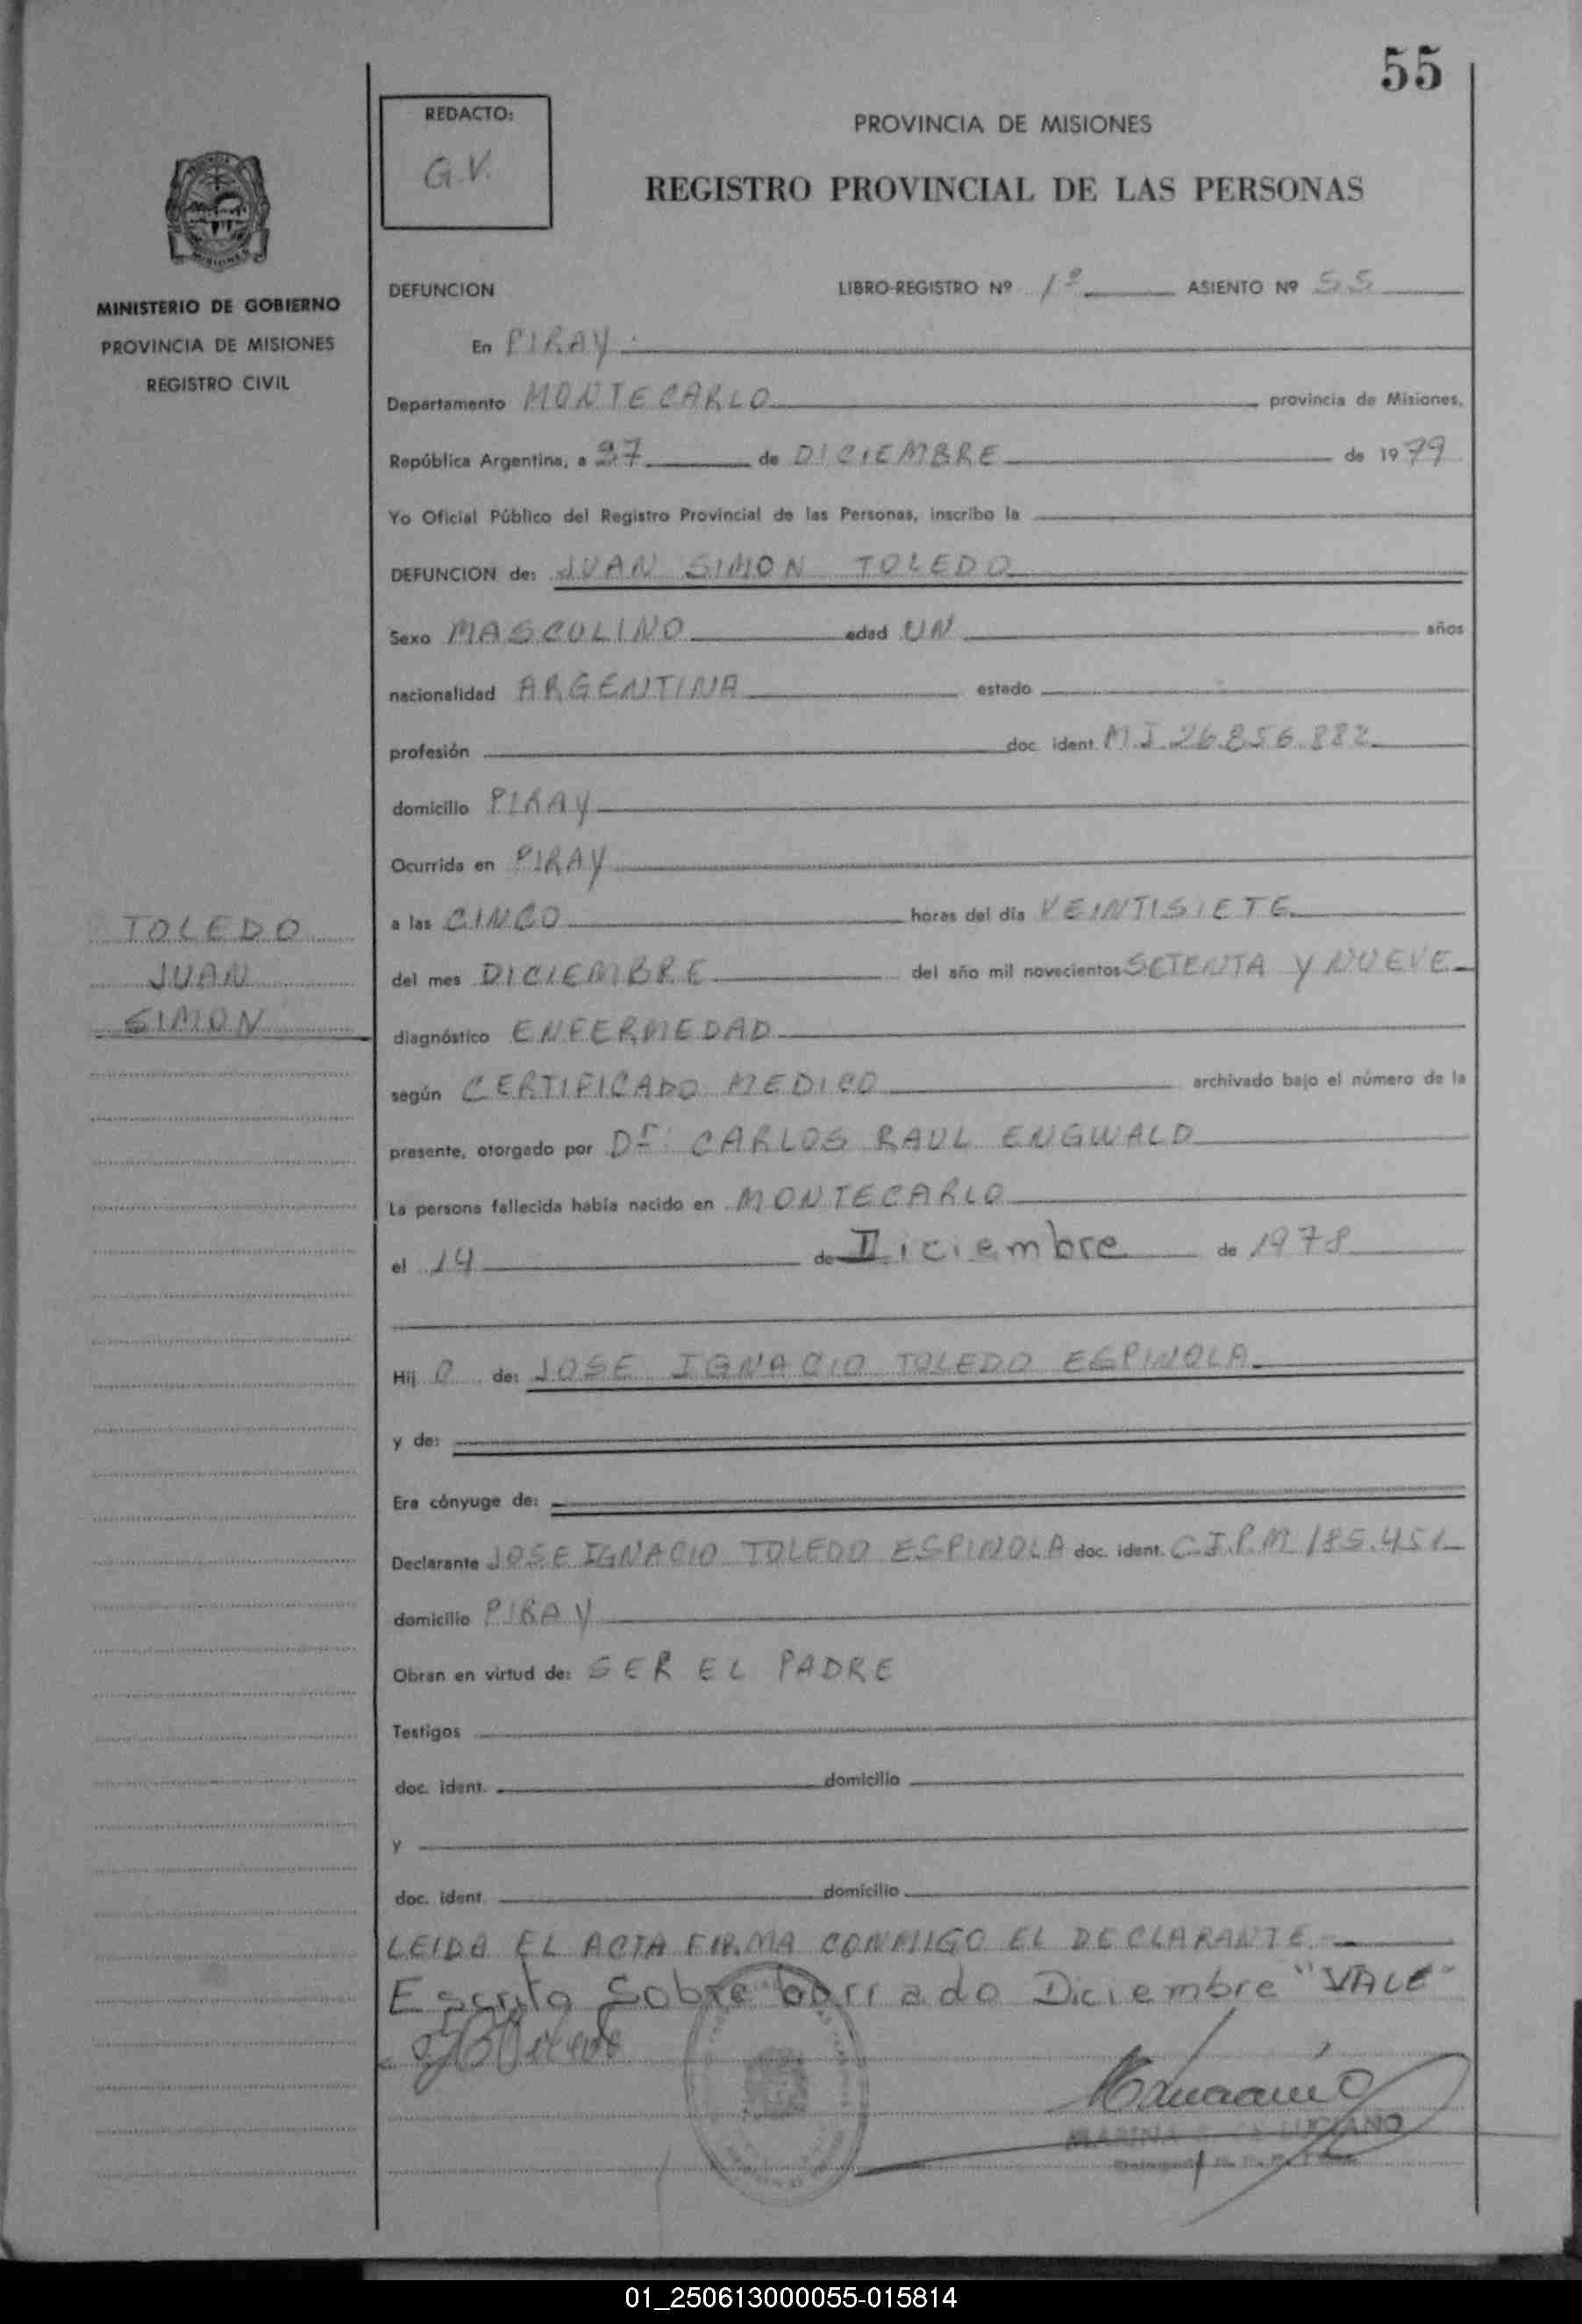 55
REDACTO:
G.V.
PROVINCIA DE MISIONES
REGISTRO PROVINCIAL DE LAS PERSONAS
MINISTERIO DE GOBIERNO
PROVINCIA DE MISIONES
REGISTRO CIVIL
DEFUNCION LIBRO-REGISTRO Nº 1º ASIENTO Nº 55
En PIRAY
Departamento MONTECARLO provincia de Misiones,
República Argentina, a 27 de DICIEMBRE de 1979
Yo Oficial Público del Registro Provincial de las Personas, inscribo la
DEFUNCION de: JUAN SIMON TOLEDO
Sexo MASCULINO edad UN años
nacionalidad ARGENTINA estado
profesión doc. ident. M.I. 26.856.882
domicilio PIRAY
Ocurrida en PIRAY
a las CINCO horas del día VEINTISIETE
del mes DICIEMBRE del año mil novecientos SETENTA Y NUEVE
diagnóstico ENFERMEDAD
según CERTIFICADO MEDICO archivado bajo el número de la
presente, otorgado por Dr. CARLOS RAUL ENGWALD
La persona fallecida había nacido en MONTECARLO
el 14 de Diciembre de 1978
Hij O de: JOSE IGNACIO TOLEDO ESPINOLA
y de:
Era cónyuge de:
Declarante JOSE IGNACIO TOLEDO ESPINOLA doc. ident. C.I.P.M 185.451
domicilio PIRAY
Obran en virtud de: SER EL PADRE
Testigos
doc. ident. domicilio
y
doc. ident. domicilio
LEIDA EL ACTA FIRMA CONMIGO EL DECLARANTE
Escrito Sobre borrado Diciembre "VALE"
TOLEDO
JUAN
SIMON
MARINA LUCIANO
01_250613000055-015814